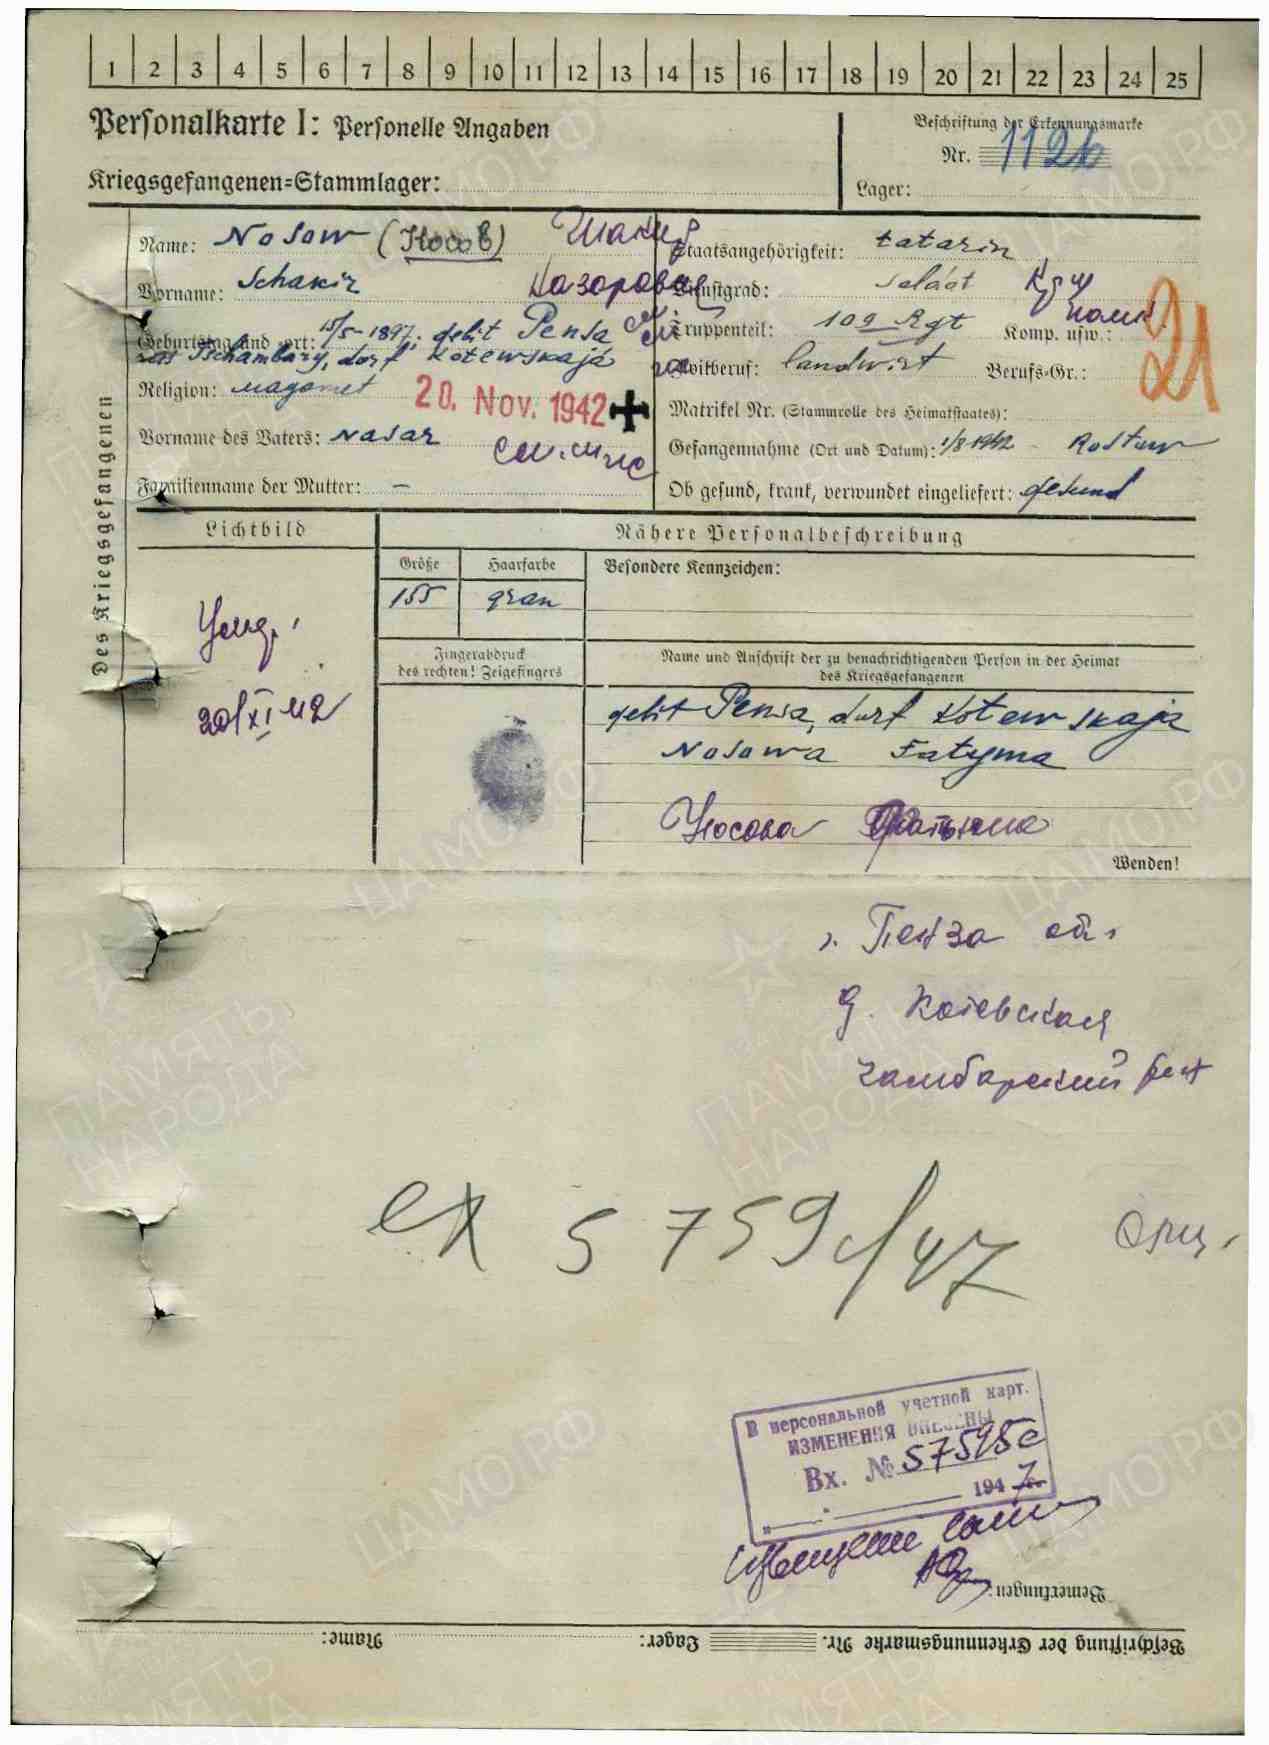 1 2 3 4 5 6 7 8 9 10 11 12 13 14 15 16 17 18 19 20 21 22 23 24 25
Personalkarte I: Personelle Angaben
Kriegsgefangenen=Stammlager:
Beschriftung der Erkennungsmarke
Nr. 1126
Lager:
Des Kriegsgefangenen
Name: Nosow (Носов) Шакир
Vorname: Schakir Назорович
Geburtstag und =ort: 15/5-1897, gebit Pensa
ras Tschambary, dorf Kotewskaja
Religion: magomet
20. Nov. 1942
Vorname des Vaters: Nasar
Familienname der Mutter: –
Staatsangehörigkeit: tatarin
Dienstgrad: Soldat
Truppenteil: 109 Rgt Komp. usw.:
Zivilberuf: landwirt Berufs=Gr.:
21
Matrikel Nr. (Stammrolle des Heimatstaates):
Gefangennahme (Ort und Datum): 1/8 1942 Rostow
Ob gesund, krank, verwundet eingeliefert: gesund
Lichtbild
Nähere Personalbeschreibung
Größe Haarfarbe Besondere Kennzeichen:
155 grau
Умер.
20/XI 42
Fingerabdruck
des rechten! Zeigefingers
Name und Anschrift der zu benachrichtigenden Person in der Heimat
des Kriegsgefangenen
gebit Pensa, dorf Kotewskaja
Nosowa Fatyma
Носова Фатыма
Wenden!
г. Пенза обл
д. Котевская
Чамбарский
5759с/47
В персональной учетной карт.
ИЗМЕНЕНИЯ ВНЕСЕНЫ
Вх. № 57595с
1947 г.
Bemerkungen:
Name: Lager: Beschriftung der Erkennungsmarke Nr.
ПАМЯТЬ НАРОДА
ЦАМО.РФ